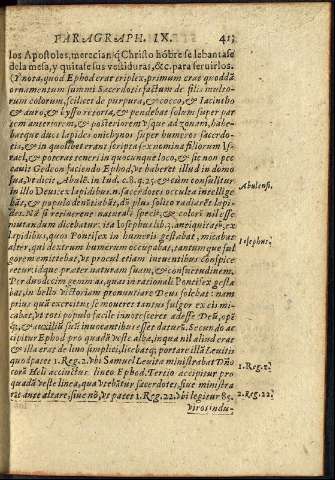 PARAGRAPH. IX. 413
los Apostoles, merecían q̃ Christo hōbre se lebantase
de la mesa, y quitase sus vestiduras, &c. para seruirlos.
(Y nota, quod Ephod erat triplex, primum erat quoddā
ornamentum summi Sacerdotis factum de filis multo-
rum colorum, scilicet de purpura, & cocco, & Iacinbo
& auro, & bysso retorta, & pendebat solum super par
tem anteriorem, & posteriorem vsque ad zonam, habe-
batque duos lapides onichynos super humeros sacerdo-
tis, & in quolibet erant scripta sex nomina filiorum Is-
rael, & poterat teneri in quocunque loco, & sic non pec
cauit Gedeon faciendo Ephod, vt haberet illud in domo
sua, vt dicit Abulē. in Iud. c. 8. q. 25 & cum consulitur
in illo Deus ex lapidibus n. sacerdos occulta intellige
bāt, & populo denotiabāt, dū plus solito radiarēt lapi-
des. Nā si retinerent naturalē speciē, & colorē nil esse
mutandum dicebatur: ita Iosephus lib. 3. antiquitatū. ex
lapidibus, quos Pontifex in humeris gestabat, micabat
alter, qui dextrum humerum occupabat, tantumque ful
gorem emittebat, vt procul etiam intuentibus conspice
retur: idque præter naturam suam, & consuetudinem.
Per duodecim gemmas, quas in rationali Pontifex gesta
bat, in bello victoriam pronuntiare Deus solebat: nam
prius quā exercitus se moueret tantus fulgor ex eis mi-
cabat, vt toti populo facile innotesceret adesse Deū, opē
q̃, & auxiliū suū inuocantibus esse daturū. Secundo ac
cipitur Ephod pro quadā veste alba, in qua nil aliud erat
& illa erat de lino simplici, licebatq̃ portare illā Leuitis
quo pacto 1. Reg. 2. vbi Samuel Leuita ministrabat Dño
corā Heli accinctus lineo Ephod. Tertio accipitur pro
quadā veste linea, qua vtebātur sacerdotes, siue ministra
rēt ante altare, siue nō, vt patet 1. Reg. 22. vbi legitur 85.
viros indu-
Abulensi.
Iosephus.
1. Reg. 2.
2. Reg. 22.